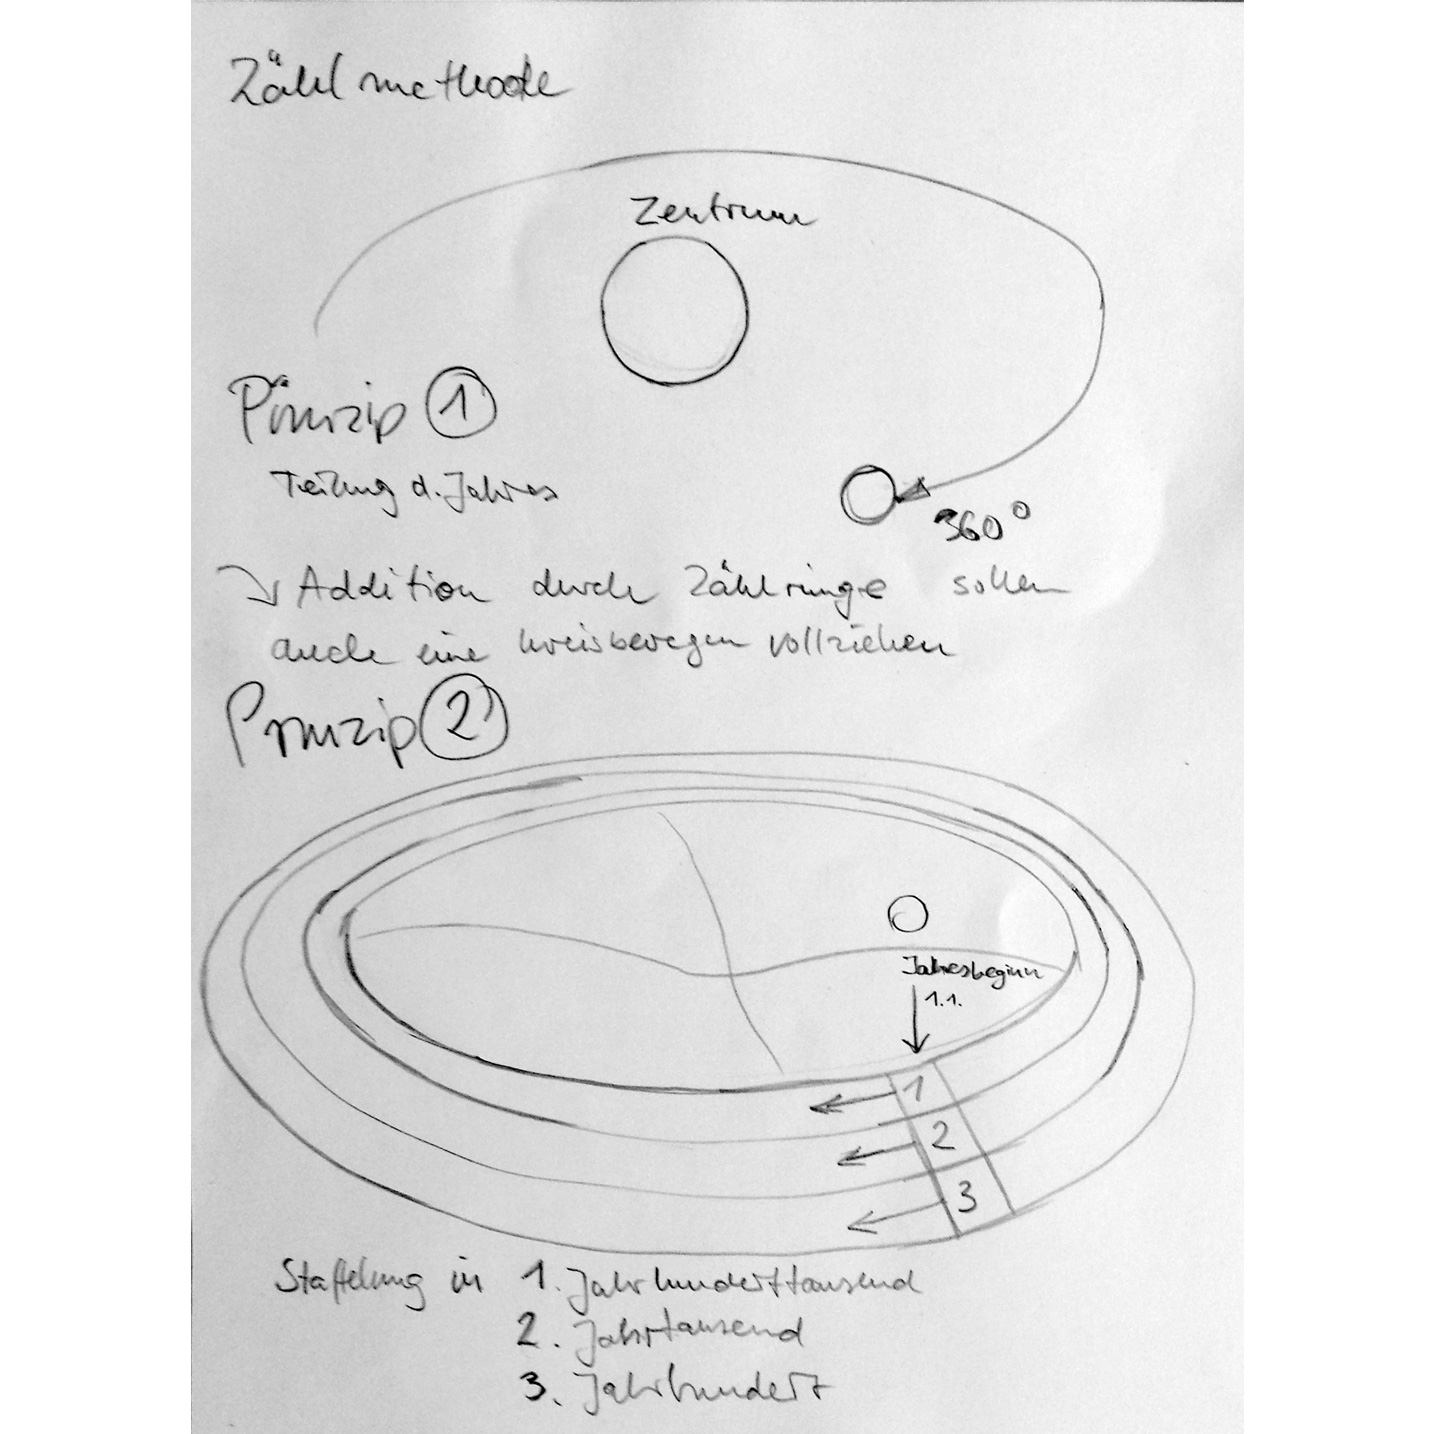 Zählmethode
Zentrum
Prinzip 1
Teilung d. Jahres
360°
Addition durch Zählringe sollen
auch eine kreisbewegen vollziehen
Prinzip 2
Jahresbeginn
1.1.
1
2
3
Staffelung in 1. Jahrhunderttausend
2. Jahrtausend
3. Jahrhundert